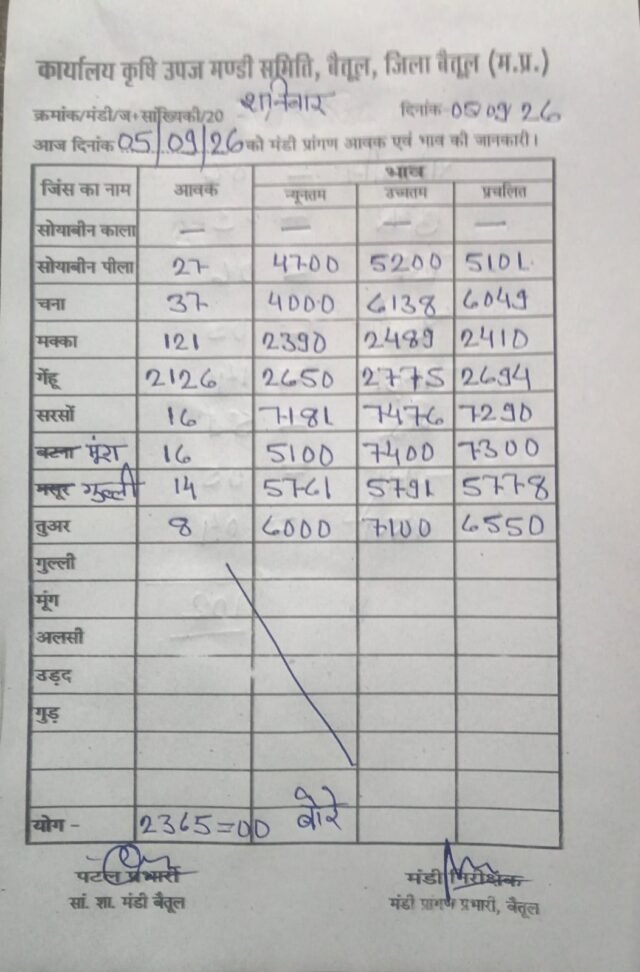 कार्यालय कृषि उपज मण्डी समिति, बैतूल, जिला बैतूल (म.प्र.)
शनिवार
क्रमांक/मंडी/ज+सांख्यिकी/20 दिनांक 05/09/26
आज दिनांक 05/09/26 को मंडी प्रांगण आवक एवं भाव की जानकारी।
भाव
जिंस का नाम आवक न्यूनतम उच्चतम प्रचलित
सोयाबीन काला — — — —
सोयाबीन पीला 27 4700 5200 5101
चना 37 4000 6138 6049
मक्का 121 2390 2489 2410
गेंहू 2126 2650 2775 2694
सरसों 16 7181 7476 7290
बटना मूंग 16 5100 7400 7300
मसूर गुल्ली 14 5761 5791 5778
तुअर 8 6000 7100 6550
गुल्ली
मूंग
अलसी
उड़द
गुड़
योग - 2365=00 बोरे
पटल प्रभारी मंडी निरीक्षक
सां. शा. मंडी बैतूल मंडी प्रांगण प्रभारी, बैतूल